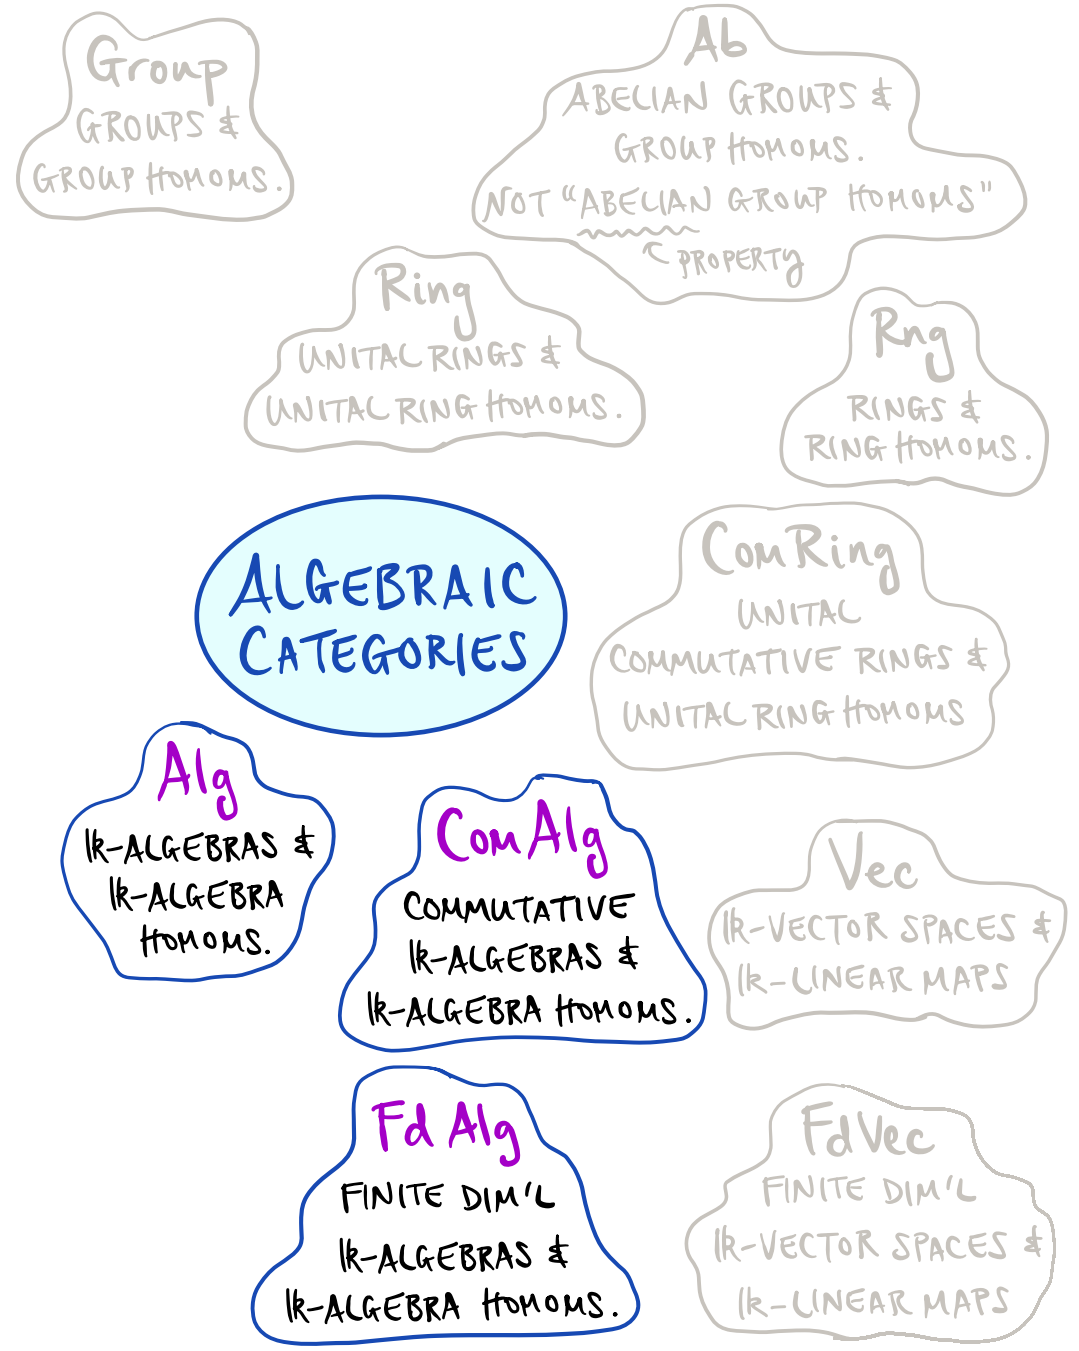 Group
GROUPS &
GROUP HOMOMS.
Ab
ABELIAN GROUPS &
GROUP HOMOMS.
NOT "ABELIAN GROUP HOMOMS"
PROPERTY
Ring
UNITAL RINGS &
UNITAL RING HOMOMS.
Rng
RINGS &
RING HOMOMS.
ALGEBRAIC
CATEGORIES
ComRing
UNITAL
COMMUTATIVE RINGS &
UNITAL RING HOMOMS
Alg
𝕜-ALGEBRAS &
𝕜-ALGEBRA
HOMOMS.
ComAlg
COMMUTATIVE
𝕜-ALGEBRAS &
𝕜-ALGEBRA HOMOMS.
Vec
𝕜-VECTOR SPACES &
𝕜-LINEAR MAPS
FdAlg
FINITE DIM'L
𝕜-ALGEBRAS &
𝕜-ALGEBRA HOMOMS.
FdVec
FINITE DIM'L
𝕜-VECTOR SPACES &
𝕜-LINEAR MAPS